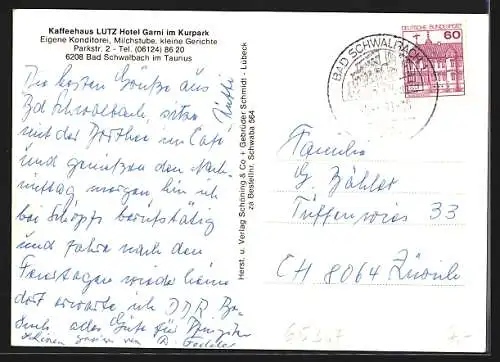 Kaffeehaus LUTZ Hotel Garni im Kurpark
Eigene Konditorei, Milchstube, kleine Gerichte
Parkstr. 2 - Tel. (06124) 86 20
6208 Bad Schwalbach im Taunus
Die besten Grüße aus
Bd Schwalbach, sitze
mit der Dorther im Café
und genießen den Nach-
mittag morgen bin ich
bei Schöpfs berufstätig
und fahre nach den
Feiertagen wieder heim
dort erwarte ich DDR Be-
such alles Gute für
Herst. u. Verlag Schöning & Co + Gebrüder Schmidt - Lübeck
za Bestellnr. Schwaba 564
BAD SCHWALBACH
DEUTSCHE BUNDESPOST
60
Familie
G. Zähler
Tüffenwies 33
CH 8064 Zürich